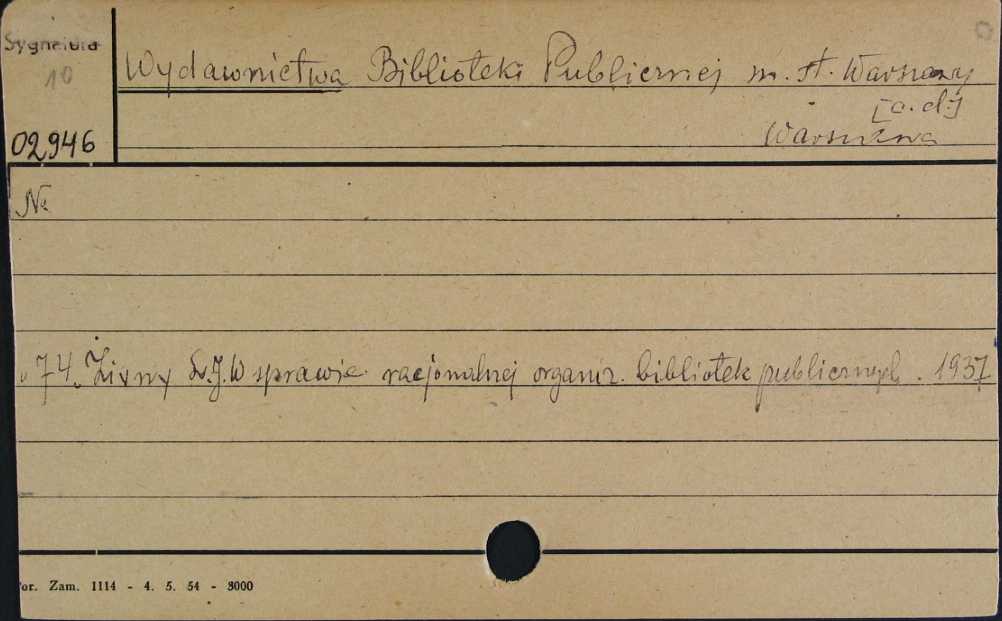 Sygnatura
10
Wydawnictwa Biblioteki Publicznej m. st. Warszawy
[c.d.]
02946
Warszawa
№
74. Živny L.J. W sprawie racjonalnej organiz. bibliotek publicznych. 1937
or. Zam. 1114 - 4. 5. 54 - 3000